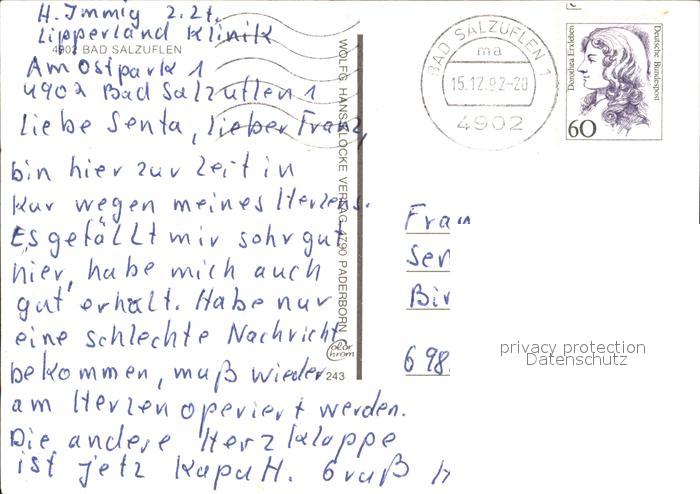 H. Immig z.Zt.
Lipperland Klinik
4902 BAD SALZUFLEN
Am Ostpark 1
4902 Bad Salzuflen 1
Liebe Senta, lieber Franz,
bin hier zur Zeit in
Kur wegen meines Herzens.
Es gefällt mir sohr gut
hier, habe mich auch
gut erhalt. Habe nur
eine schlechte Nachricht
bekommen, muß wieder
am Herzen operiert werden.
Die andere Herzklappe
ist jetz kaputt. Gruß H
WOLFG. HANS KLOCKE VERLAG 4790 PADERBORN
color chrom
243
BAD SALZUFLEN 1
ma
15.12.92-20
4902
Dorothea Erxleben
Deutsche Bundespost
60
Sen
Bir
698
privacy protection
Datenschutz